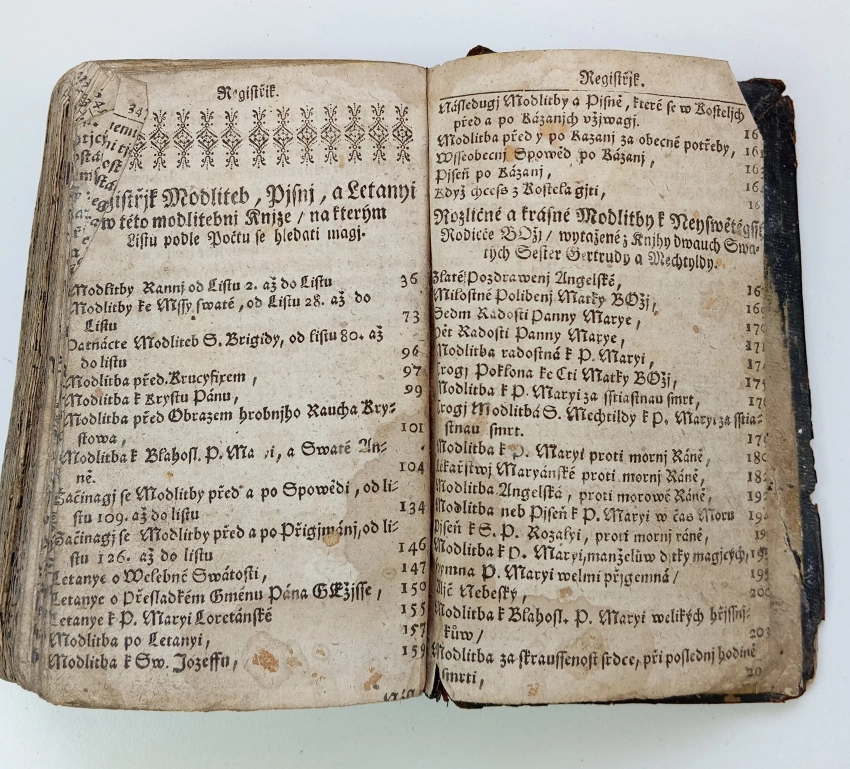 Registřik.
34
Registřjk Modliteb, Pjsnj, a Letanyi
w této modlitebni Knjze / na kterým
Listu podle Počtu se hledati magj.
Modlitby Rannj od Listu 2. až do Listu 36
Modlitby ke Mssy swaté, od Listu 28. až do
Listu 73
Patnácte Modliteb S. Brigidy, od listu 80. až
do listu 96
Modlitba před Krucyfixem, 97
Modlitba k Krystu Pánu, 99
Modlitba před Obrazem hrobnjho Raucha Kry-
stowa, 101
Modlitba k Blahosl. P. Ma i, a Swaté An-
ně. 104
Začinagj se Modlitby před a po Spowědi, od li-
stu 109. až do listu 134
Začinagj se Modlitby před a po Přigjmánj, od li-
stu 126. až do listu 146
Letanye o Welebné Swátosti, 147
Letanye o Přesladkém Gménu Pána GEžjsse, 150
Letanye k P. Maryi Loretánské 155
Modlitba po Letanyi, 157
Modlitba k Sw. Jozeffu, 159
Registřjk.
Následugj Modlitby a Pjsně, které se w Kosteljch
před a po Kázanjch vžjwagj.
Modlitba před y po Kazanj za obecné potřeby, 16
Wsseobecnj Spowěd po Kázanj, 16
Pjseň po Kázanj, 16
Když chcess z Kostela gjti, 16
Rozličné a krásné Modlitby k Neyswětěgssj
Rodičce BOžj / wytažené z Knjhy dwauch Swa-
tých Sester Gertrudy a Mechtyldy.
Zlaté Pozdrawenj Angelské, 16
Milostné Poljbenj Matky BOžj, 16
Sedm Radosti Panny Marye, 17
Pět Radosti Panny Marye, 17
Modlitba radostná k P. Maryi, 17
Trogj Poklona ke Cti Matky BOžj, 17
Modlitba k P. Maryi za sstiastnau smrt, 17
Trogj Modlitbá S. Mechtildy k P. Maryi za sstia-
stnau smrt. 17
Modlitba k P. Maryi proti mornj Ráně, 18
Lekařstwj Maryánské proti mornj Ráně, 18
Modlitba Angelská, proti morowé Ráně, 19
Modlitba neb Pjseň k P. Maryi w čas Moru 19
Pjseň k S. P. Rozalyi, proti mornj ráně, 19
Modlitba k P. Maryi, manželůw djtky magjcých, 19
Hymna P. Maryi welmi přjgemná / 19
Kljč Nebeský, 20
Modlitba k Blahosl. P. Maryi welikých hřjssnj-
kůw / 203
Modlitba za skraussenost srdce, při poslednj hodině
smrti, 20